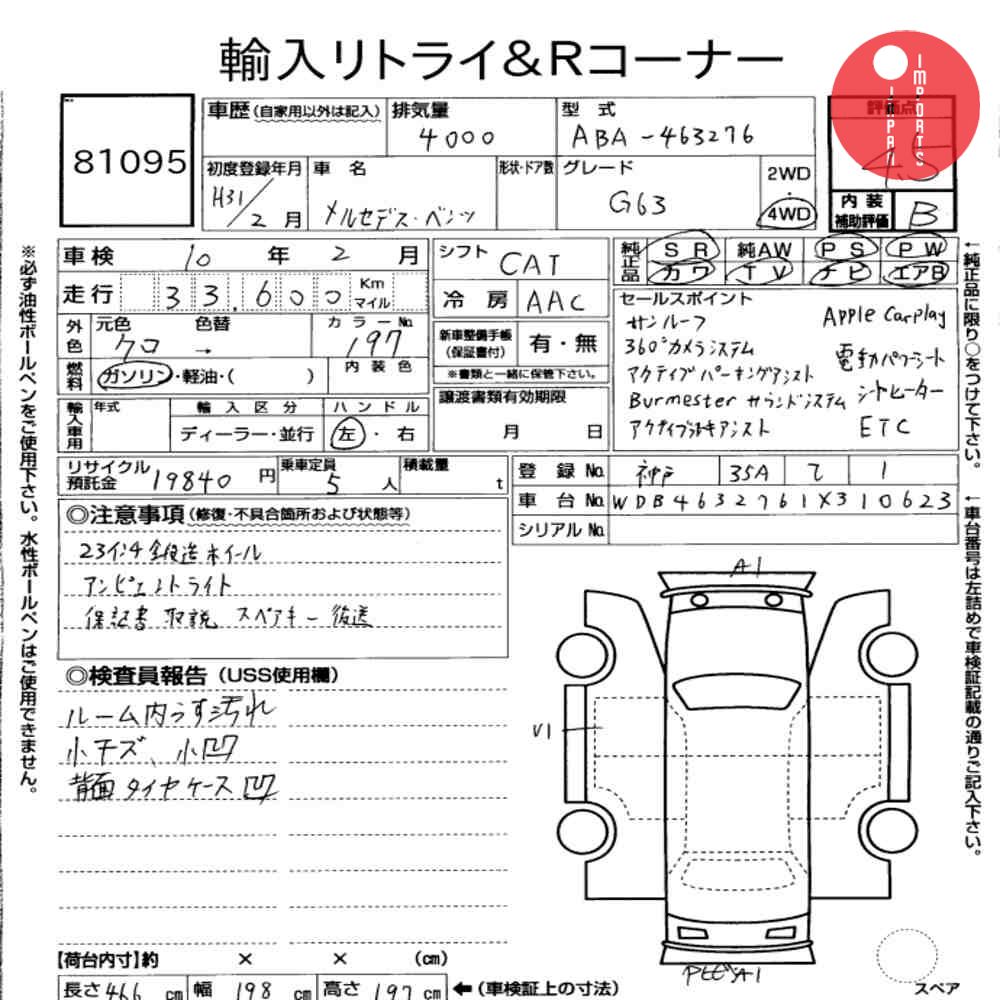 輸入リトライ&Rコーナー
JAPAN IMPORTS
81095
車歴(自家用以外は記入)
排気量
4000
型 式
ABA-463276
評価点
4.5
初度登録年月
H31/2月
車 名
メルセデス・ベンツ
形状・ドア数
グレード
G63
2WD
・
4WD
内装
補助評価
B
車検 10年 2月
走行 33,600 Km マイル
シフト
CAT
冷房
AAC
純正品
SR 純AW PS PW
カワ TV ナビ エアB
外色
元色 クロ
色替 →
カラーNo. 197
燃料
ガソリン・軽油・( )
内装色
新車整備手帳
(保証書付)
有・無
※書類と一緒に保管下さい。
セールスポイント
サンルーフ
360°カメラシステム
アクティブパーキングアシスト
Burmester サウンドシステム
アクティブ
アシスト
Apple Carplay
電動パワーシート
シートヒーター
ETC
輸入車用
年式
輸入区分
ディーラー・並行
ハンドル
左・右
譲渡書類有効期限
月 日
リサイクル
預託金
19840円
乗車定員
5人
積載量
t
登録No.
神戸 35A 1
車台No.
WDB4632761X310623
シリアルNo.
◎注意事項(修復・不具合箇所および状態等)
23インチ鍛造ホイール
アンビエントライト
保証書 取説 スペアキー 後送
◎検査員報告(USS使用欄)
ルーム内うす汚れ
小キズ、小凹
背面タイヤケース凹
A1
V1
A1
【荷台内寸】約 × × (cm)
長さ466cm 幅198cm 高さ197cm
←(車検証上の寸法)
スペア
※必ず油性ボールペンをご使用下さい。水性ボールペンはご使用できません。
←純正品に限り○をつけて下さい。
←車台番号は左詰めで車検証記載の通りご記入下さい。